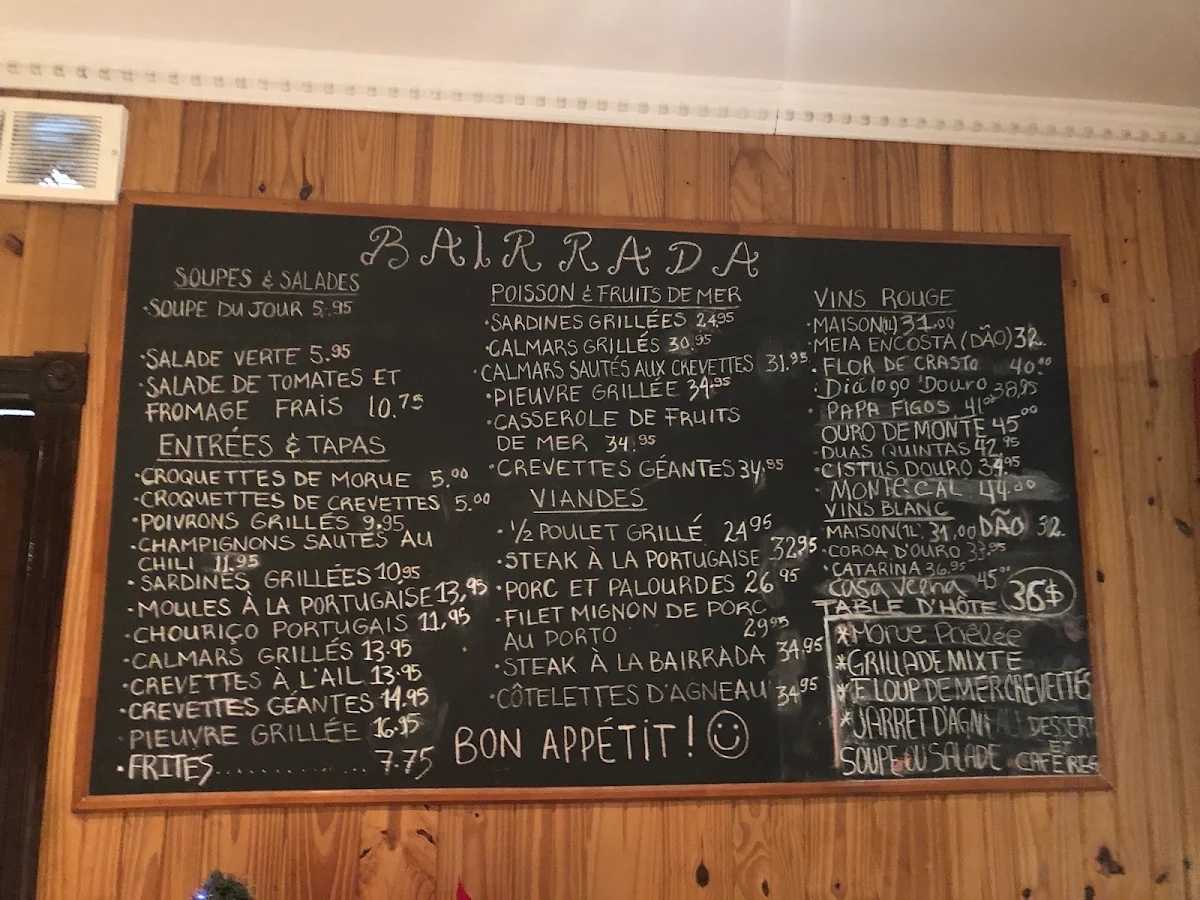 BAIRRADA
SOUPES & SALADES
·SOUPE DU JOUR 5.95
·SALADE VERTE 5.95
·SALADE DE TOMATES ET
FROMAGE FRAIS 10.75
ENTRÉES & TAPAS
·CROQUETTES DE MORUE 5.00
·CROQUETTES DE CREVETTES 5.00
·POIVRONS GRILLÉS 9.95
·CHAMPIGNONS SAUTÉS AU
CHILI 11.95
·SARDINES GRILLÉES 10.95
·MOULES À LA PORTUGAISE 13.95
·CHOURIÇO PORTUGAIS 11.95
·CALMARS GRILLÉS 13.95
·CREVETTES À L'AIL 13.95
·CREVETTES GÉANTES 14.95
·PIEUVRE GRILLÉE 16.95
·FRITES.......... 7.75
POISSON & FRUITS DE MER
·SARDINES GRILLÉES 24.95
·CALMARS GRILLÉS 30.95
·CALMARS SAUTÉS AUX CREVETTES 31.95
·PIEUVRE GRILLÉE 34.95
·CASSEROLE DE FRUITS
DE MER 34.95
·CREVETTES GÉANTES 34.95
VIANDES
·1/2 POULET GRILLÉ 24.95
·STEAK À LA PORTUGAISE 32.95
·PORC ET PALOURDES 26.95
·FILET MIGNON DE PORC
AU PORTO 29.95
·STEAK À LA BAIRRADA 34.95
·CÔTELETTES D'AGNEAU 34.95
BON APPÉTIT!
VINS ROUGE
·MAISON(1L) 31.00
·MEIA ENCOSTA (DÃO) 32.
·FLOR DE CRASTO 40.00
·Diálogo Douro 38,95
·PAPA FIGOS 41.00
OURO DE MONTE 45.00
·DUAS QUINTAS 42.95
·CISTUS DOURO 34.95
·MONTE CAL 44.00
VINS BLANC
·MAISON(1L) 31.00 DÃO 32.
·COROA D'OURO
·CATARINA 36.95
Casa 45.00
TABLE D'HÔTE 36$
*Morue
*GRILLADE MIXTE
LOUP DE MER CREVETTES
*JARRET D'AGN DESSERT
ET
SOUPE OU SALADE CAFÉ REG